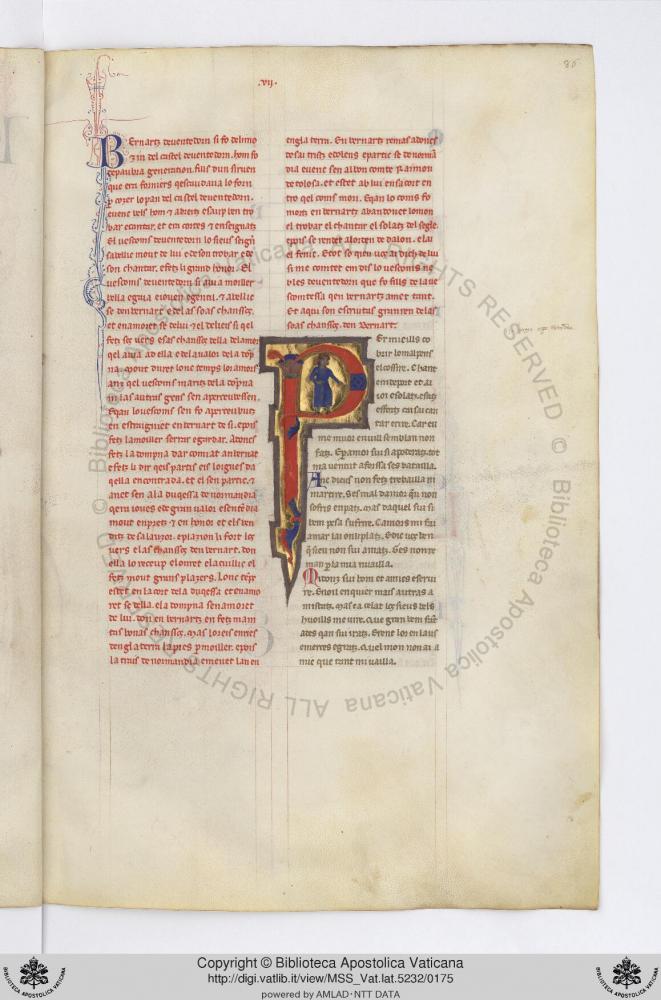 86
.vij.
BErnartz deuentedorn si fo delimo
zin del castel deuentedorn. hom fo
de paubra generation. fills dun siruen
que era forniers qescaudaua lo forn
p cozer lo pan del castel deuentedorn.
euenc bels hom & adretz esaup ben tro
bar ecantar. et era cortes & enseignatz
El uescoms deuentedorn lo sieus seigner
sabellic mout de lui edeson trobar ede
son chantar. efetz li grand honor. El
uescoms deuentedorn si auia moiller
bella egaia eiouen egentil. & abellic
se den bernart e delas soas chanssos.
et enamoret se delui & el delieis si qel
fetz sos uers esas chanssos della del amor
qel auia ad ella e delaualor dela dompna
mout duret lonc temps lor amors
anz qel uescoms maritz dela dompna
ni las autras gens sen aperceubessen.
Eqan lo uescoms sen fo aperceubutz
en estraigniet en bernart de si. epois
fetz la moiller serrar egardar. Adoncs
fetz la dompna dar comiat anbernat
efetz li dir qeis partis eis loignes da
qella encontrada. et el sen partic. &
anet sen ala duqessa de normandia
qera ioues edegran ualor esentendia
mout en pretz & en honor et els ben
ditz de sa lauzor. eplazion li fort los
uers elas chanssos den bernart. don
ella lo receup el onret el acuillic el
fetz mout grans plazers. Lonc temps
estet en la cort dela duqessa et enamo
ret se della. ela dompna senamoret
de lui. don en bernartz en fetz main
tas bonas chanssos. Mas lo reis enrics
dengla terra la pres p moiller. epois
la trais de normandia emenet lan en
engla terra. En bernartz remas adoncs
desai tristz edolens epartic se denorman
dia euenc sen al bon comte Raimon
de tolosa. et estet ab lui ensa cort en
tro qel coms mori. Eqan lo coms fo
mortz en bernartz abandonet lo mon
el trobar el chantar el solatz del segle.
epois se rendet alorden de dalon. e lai
el fenic. Etot so qieu uos ai dich de lui
si me comtet em dis lo uescoms ne
bles deuentedorn que fo fills de la ues
comtessa qen bernartz amet tant.
Et aqui son escrutas granren de las
soas chanssos. den Bernart.
PEr mieills co
brir lo mal pens
el cossire. Chant
em deport et ai
ioi esolatz. efatz
esfortz car sai can
tar erire. Car eu
me muor e nuill semblan non
fatz. Eper amor sui si apoderatz. tot
ma uencut aforssa ses batailla.
Anc dieus non fetz trebailla ni
martire. Ses mal damor qu non
sofris enpatz. mas daquel sui si
bem pesa sufrire. Camors mi fai
amar lai onil platz. Edic uos ben
qsieu non sui amatz. Ges non re
man per la mia nuailla.
Midonz sui hom et amics eserui
re. Enoil enquier mais autras a
mistatz. mas ea celat los sieus bels
huoills me uire. que gran ben fant
ades qan sui iratz. Erent lor en laus
emerces egratz. Quel mon non ai a
mic que tant mi uailla.
Copyright © Biblioteca Apostolica Vaticana
http://digi.vatlib.it/view/MSS_Vat.lat.5232/0175
powered by AMLAD·NTT DATA
BIBLIOTECA APOSTOLICA VATICANA
BIBLIOTECA APOSTOLICA VATICANA
© Biblioteca Apostolica Vaticana ALL RIGHTS RESERVED